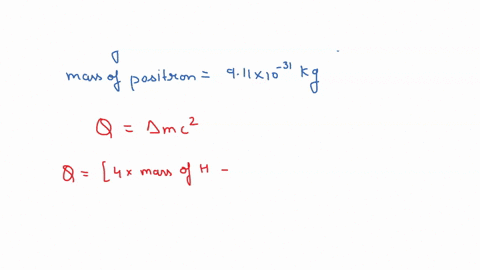 mass of positron = 9.11×10⁻³¹ kg
Q = Δmc²
Q = [4× mass of H –